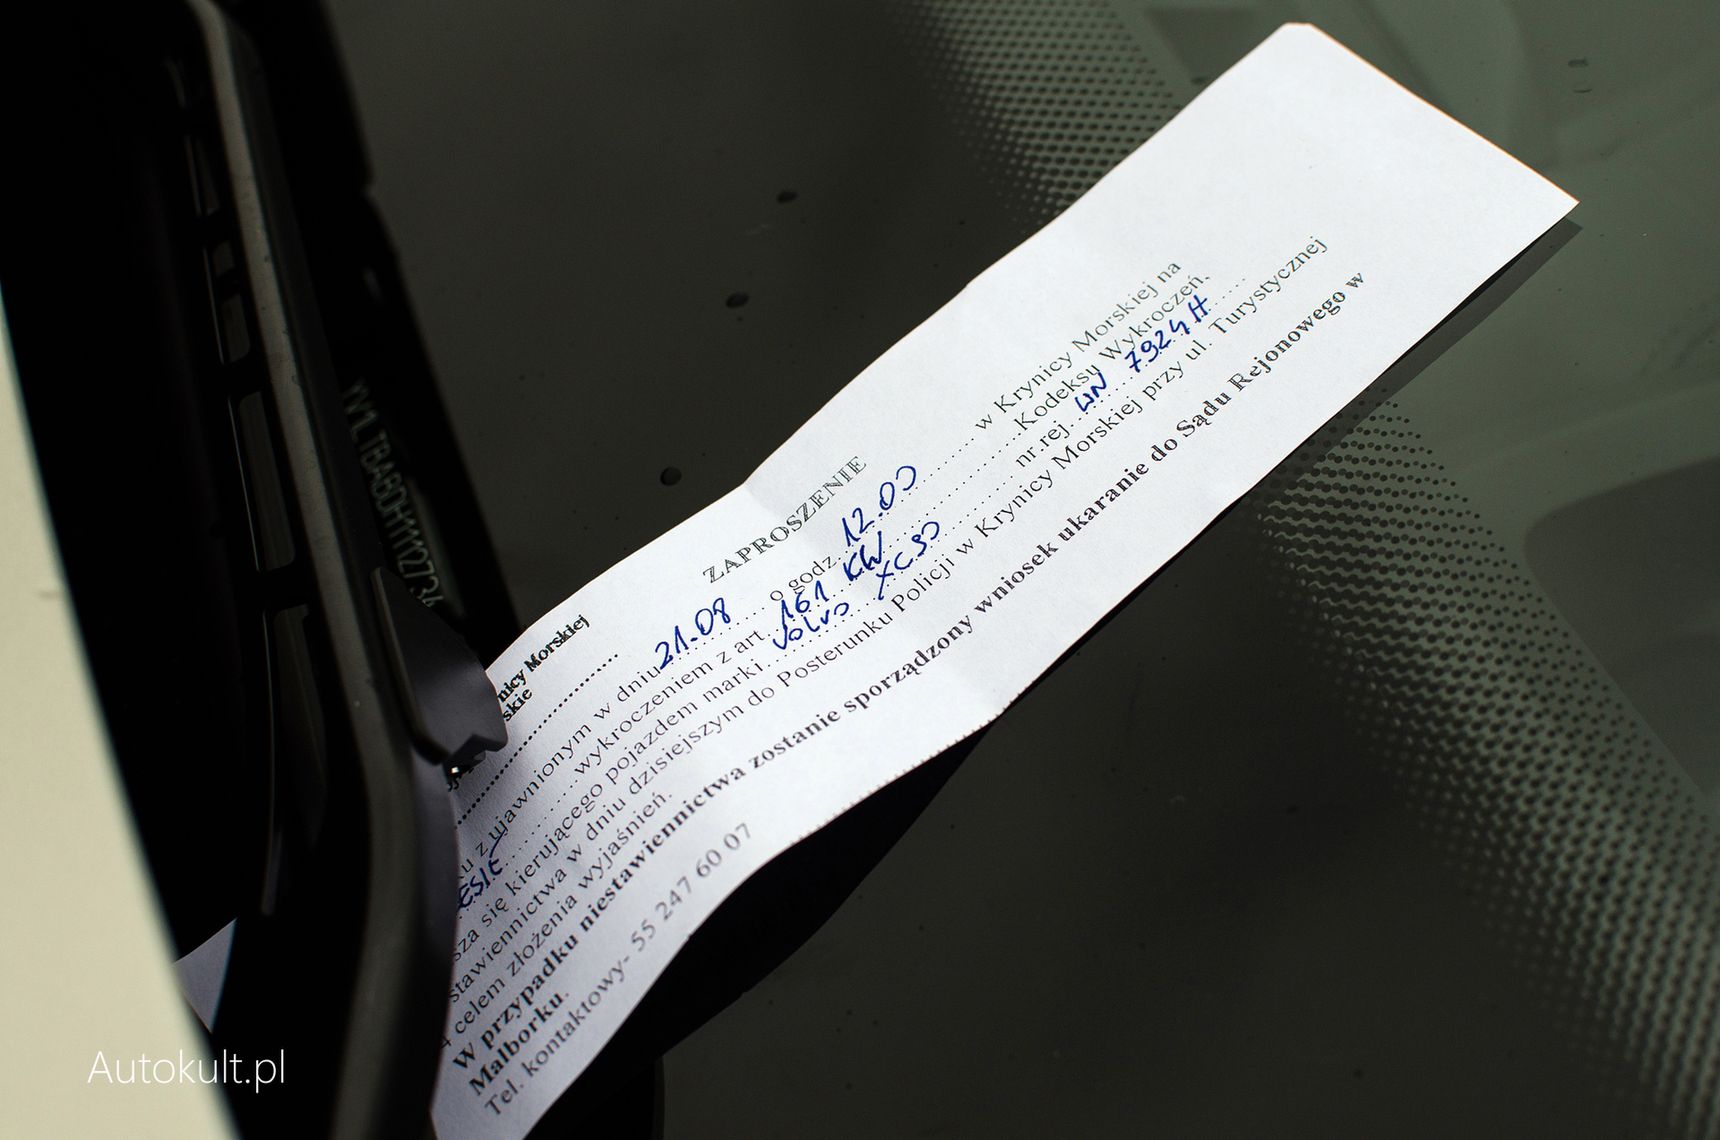 nicy Morskiej
skie
ZAPROSZENIE
u z ujawnionym w dniu 21.08 o godz. 12.00 w Krynicy Morskiej na
ESIE wykroczeniem z art. 161 KW Kodeksu Wykroczeń,
sza się kierującego pojazdem marki Volvo XC90 nr rej. WN 7924H
stawiennictwa w dniu dzisiejszym do Posterunku Policji w Krynicy Morskiej przy ul. Turystycznej
4 celem złożenia wyjaśnień.
W przypadku niestawiennictwa zostanie sporządzony wniosek ukaranie do Sądu Rejonowego w
Malborku.
Tel. kontaktowy- 55 247 60 07
YV1LTBABDH1112734
Autokult.pl